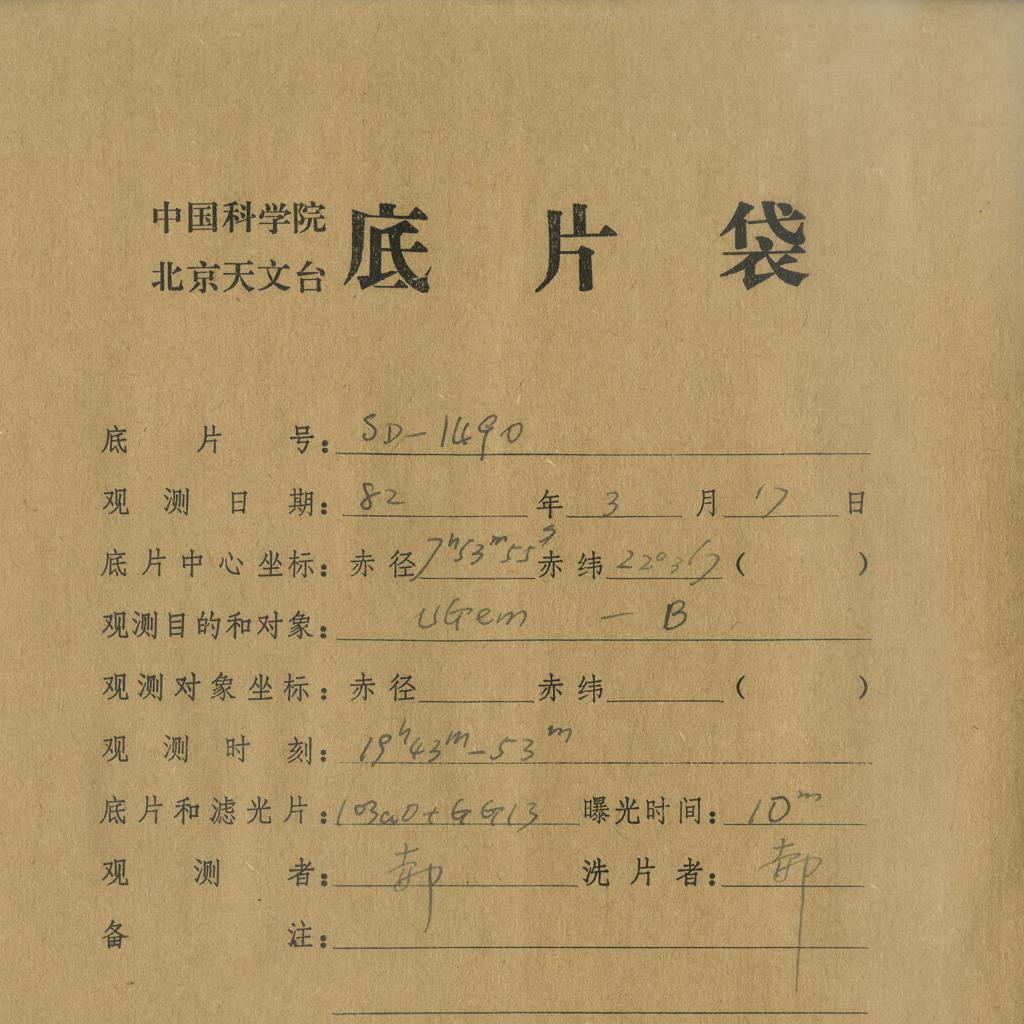 中国科学院
北京天文台
底片袋
底片号：SD-1490
观测日期：82年3月17日
底片中心坐标：赤径7ʰ53ᵐ55ˢ赤纬22°367（ ）
观测目的和对象：UGem — B
观测对象坐标：赤径 赤纬 （ ）
观测时刻：19ʰ43ᵐ-53ᵐ
底片和滤光片：103aO+GG13 曝光时间：10ᵐ
观测者：郝 洗片者：郝
备注：